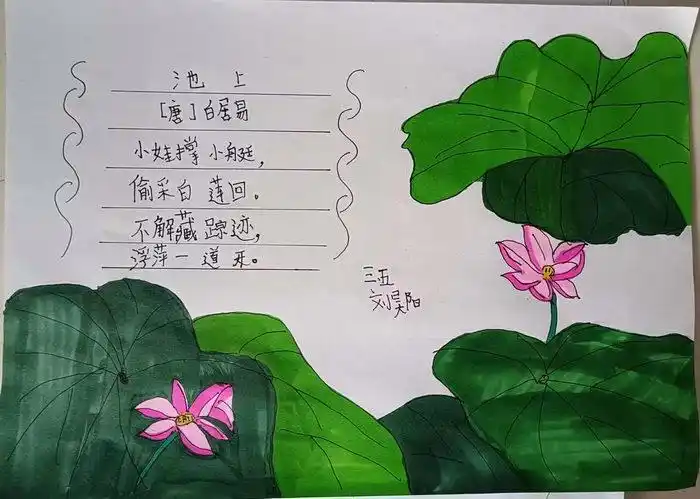 池上
[唐]白居易
小娃撑小艇,
偷采白莲回。
不解藏踪迹,
浮萍一道开。
三五
刘昊阳